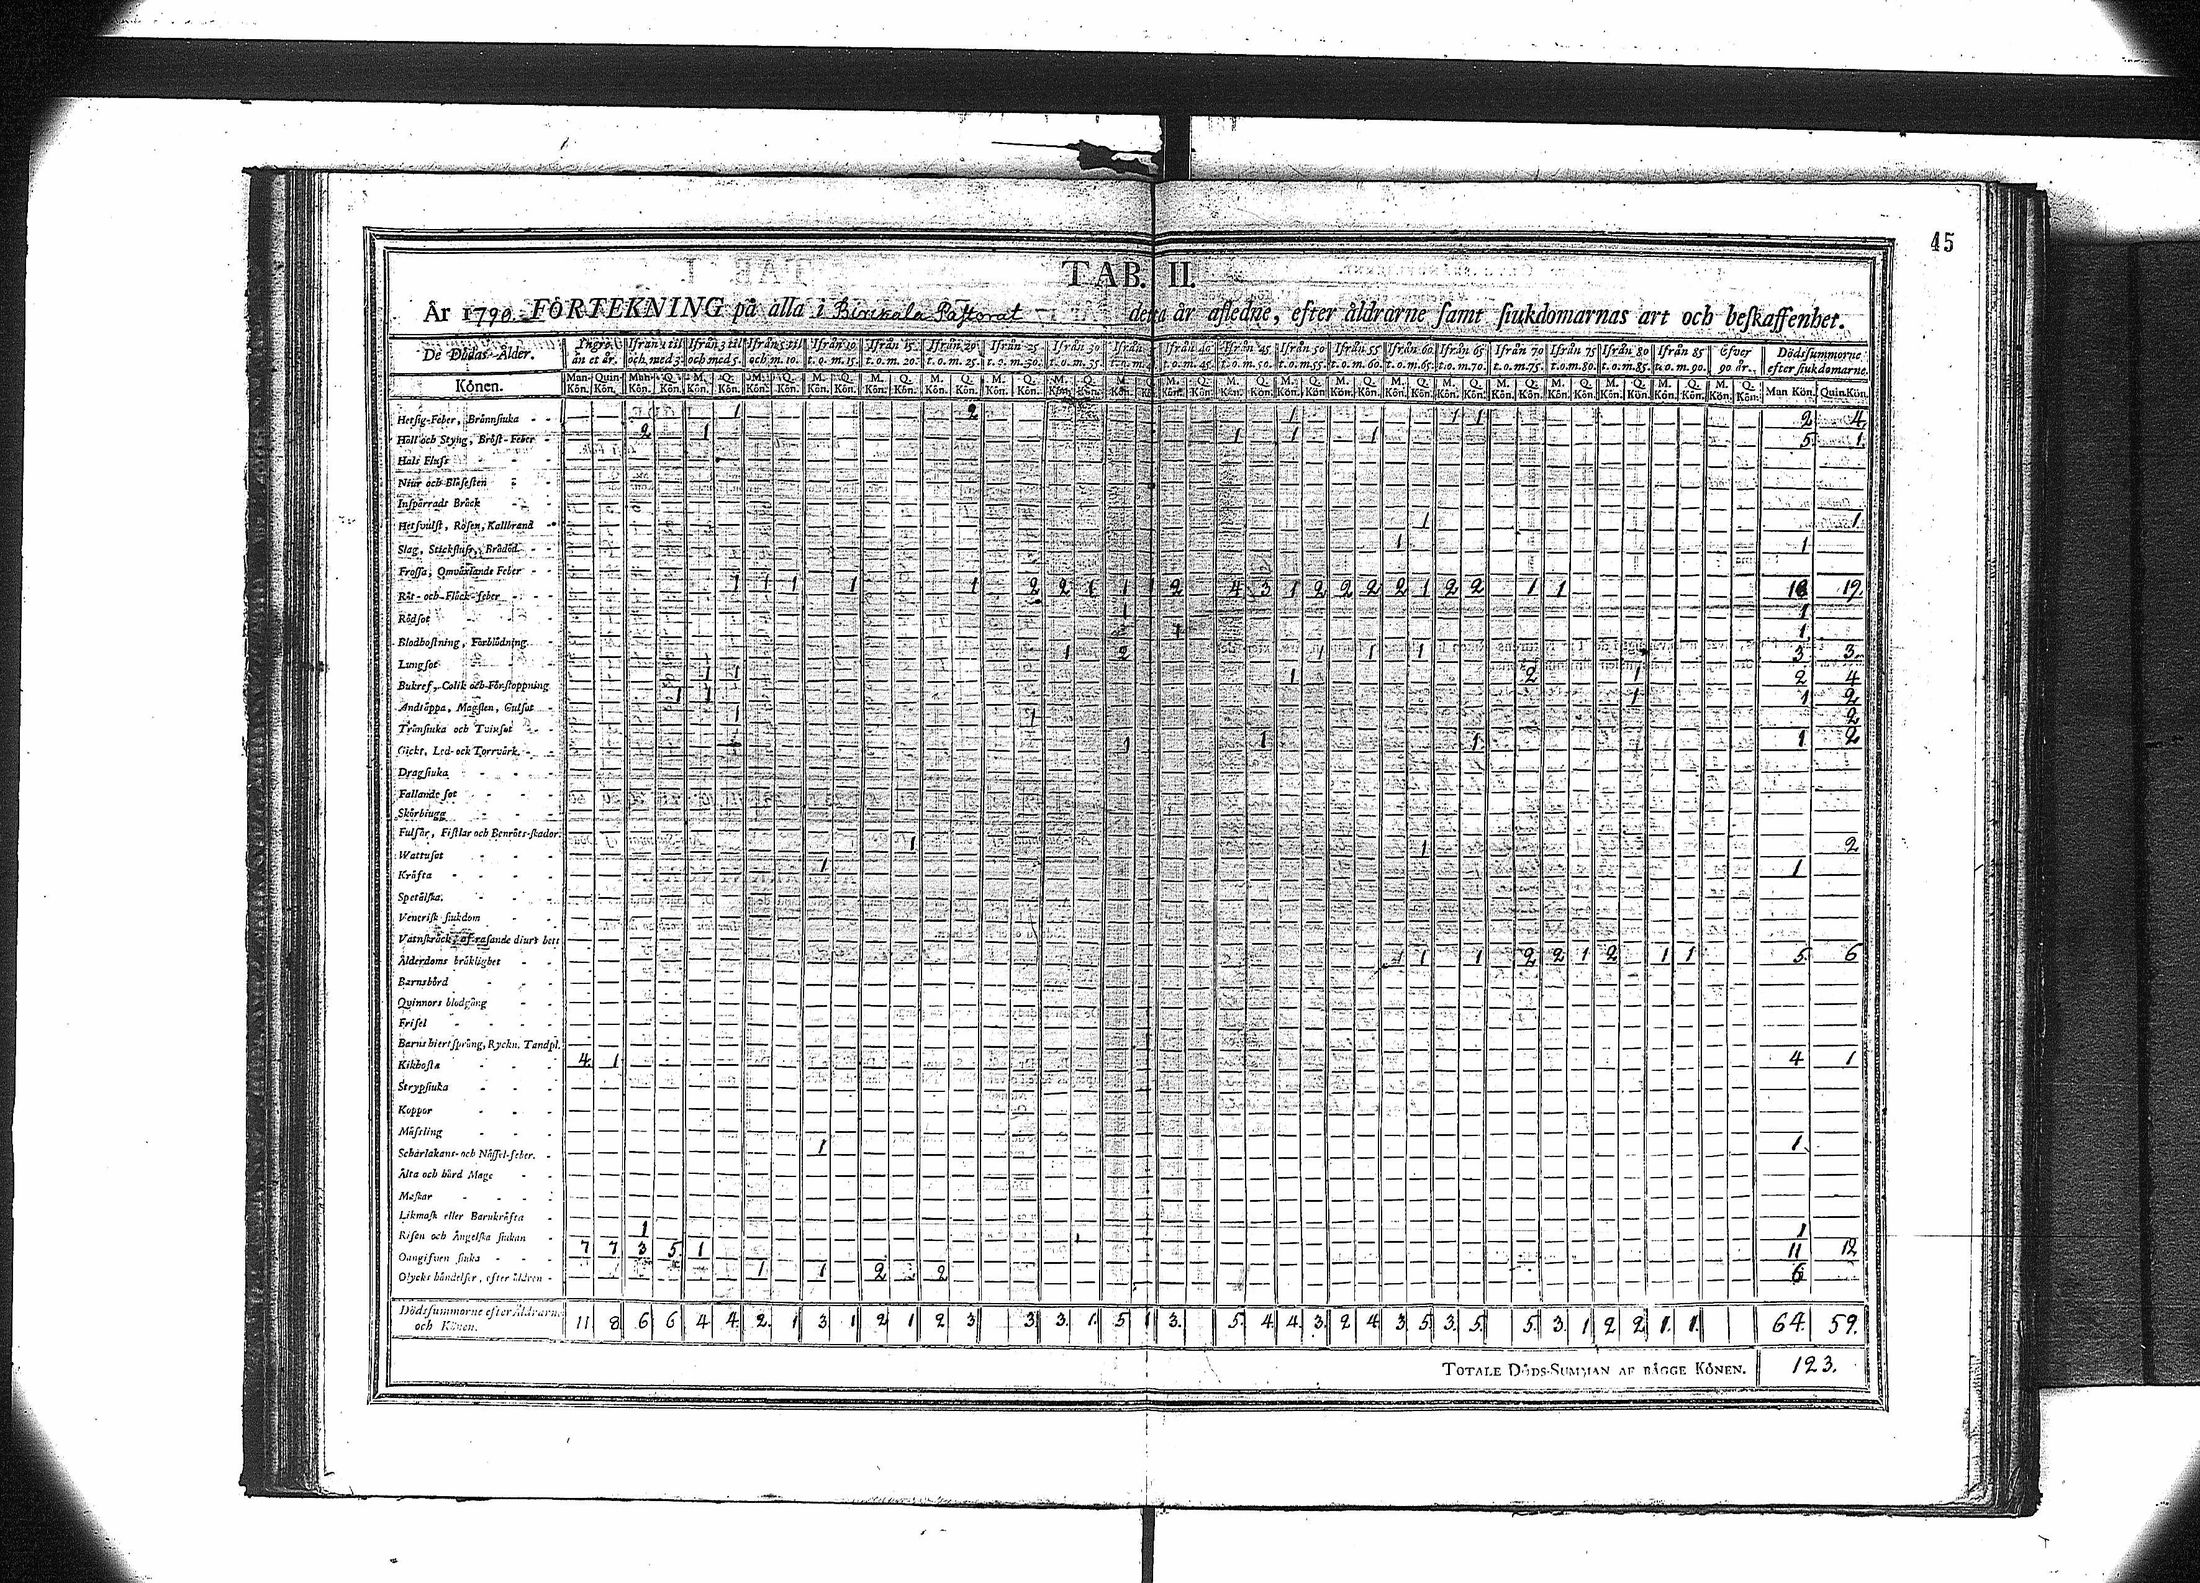 45
TAB. II.
År 1790. FÖRTEKNING på alla i Birkkala Pastorat detta år afledne, efter åldrarne samt siukdomarnas art och beskaffenhet.
De Dödas Ålder. Yngre än et år. Ifrån 1 til och med 3. Ifrån 3 til och med 5. Ifrån 5 til och m. 10. Ifrån 10 t. o. m. 15. Ifrån 15 t. o. m. 20. Ifrån 20 t. o. m. 25. Ifrån 25 t. o. m. 30. Ifrån 30 t. o. m. 35. Ifrån Ifrån 40 t. o. m. 45. Ifrån 45 t. o. m. 50. Ifrån 50 t. o. m. 55. Ifrån 55 t. o. m. 60. Ifrån 60 t. o. m. 65. Ifrån 65 t. o. m. 70. Ifrån 70 t. o. m. 75. Ifrån 75 t. o. m. 80. Ifrån 80 t. o. m. 85. Ifrån 85 t. o. m. 90. Efver 90 år. Dödssummorne efter siukdomarne.
Könen. Man Kön. Quin Kön. Man Kön. Q. Kön. M. Kön. Q. Kön. M. Kön. Q. Kön. M. Kön. Q. Kön. M. Kön. Q. Kön. M. Kön. Q. Kön. M. Kön. Q. Kön. M. Kön. Q. Kön. M. Kön. M. Kön. Q. Kön. M. Kön. Q. Kön. M. Kön. Q. Kön. M. Kön. Q. Kön. M. Kön. Q. Kön. M. Kön. Q. Kön. M. Kön. Q. Kön. M. Kön. Q. Kön. M. Kön. Q. Kön. M. Kön. Q. Kön. M. Kön. Q. Kön. Man Kön. Quin. Kön.
Hetsig-Feber, Brännsiuka 1 2 1 1 1 2 4
Håll och Styng, Bröst-Feber 2 1 1 1 1 5 1
Hals Fluss
Niur och Blåsesten
Inspärradt Bråck
Hetsvulst, Rosen, Kallbrand 1 1
Slag, Stickfluss, Brådöd 1 1
Frossa, Omväxlande Feber
Röt- och Fläck-feber 1 1 1 1 1 2 2 1 1 1 2 4 3 1 2 2 2 2 1 2 2 1 1 18 19
Rödsot 1 1
Blodhostning, Förblödning 1 1
Lungsot 1 2 1 1 1 3 3
Bukref, Colik och Förstoppning 1 1 1 2 1 2 4
Andtäppa, Magsten, Gulsot 1 1 1 1 2
Trånsiuka och Tvinsot 1 1 2
Gickt, Led- ock Torrvärk 1 1 1 1 2
Dragsiuka
Fallande sot
Skörbiugg
Fulsår, Fistlar och Benröts-skador
Wattusot 1 1 2
Kräfta 1 1
Spetälska
Venerisk siukdom
Vatnskräck, af rasande diurs bett
Ålderdoms bräklighet 1 1 1 2 2 1 2 1 1 5 6
Barnsbörd
Quinnors blodgång
Frisel
Barns hiertsprång, Ryckn. Tandpl.
Kikhosta 4 1 4 1
Strypsiuka
Koppor
Mässling
Scharlakans- och Nässel-feber 1 1
Älta och hård Mage
Maskar
Likmask eller Barnkräfta
Risen och Ängelska siukan 1 1
Oangifven siuka 7 7 3 5 1 11 12
Olycks händelser, efter åldren 1 1 2 2 6
Dödssummorne efter Åldrarne
och Könen. 11 8 6 6 4 4 2 1 3 1 2 1 2 3 3 3 1 5 1 3 5 4 4 3 2 4 3 5 3 5 5 3 1 2 2 1 1 64 59.
TOTALE DÖDS-SUMMAN AF BÄGGE KÖNEN. 123.